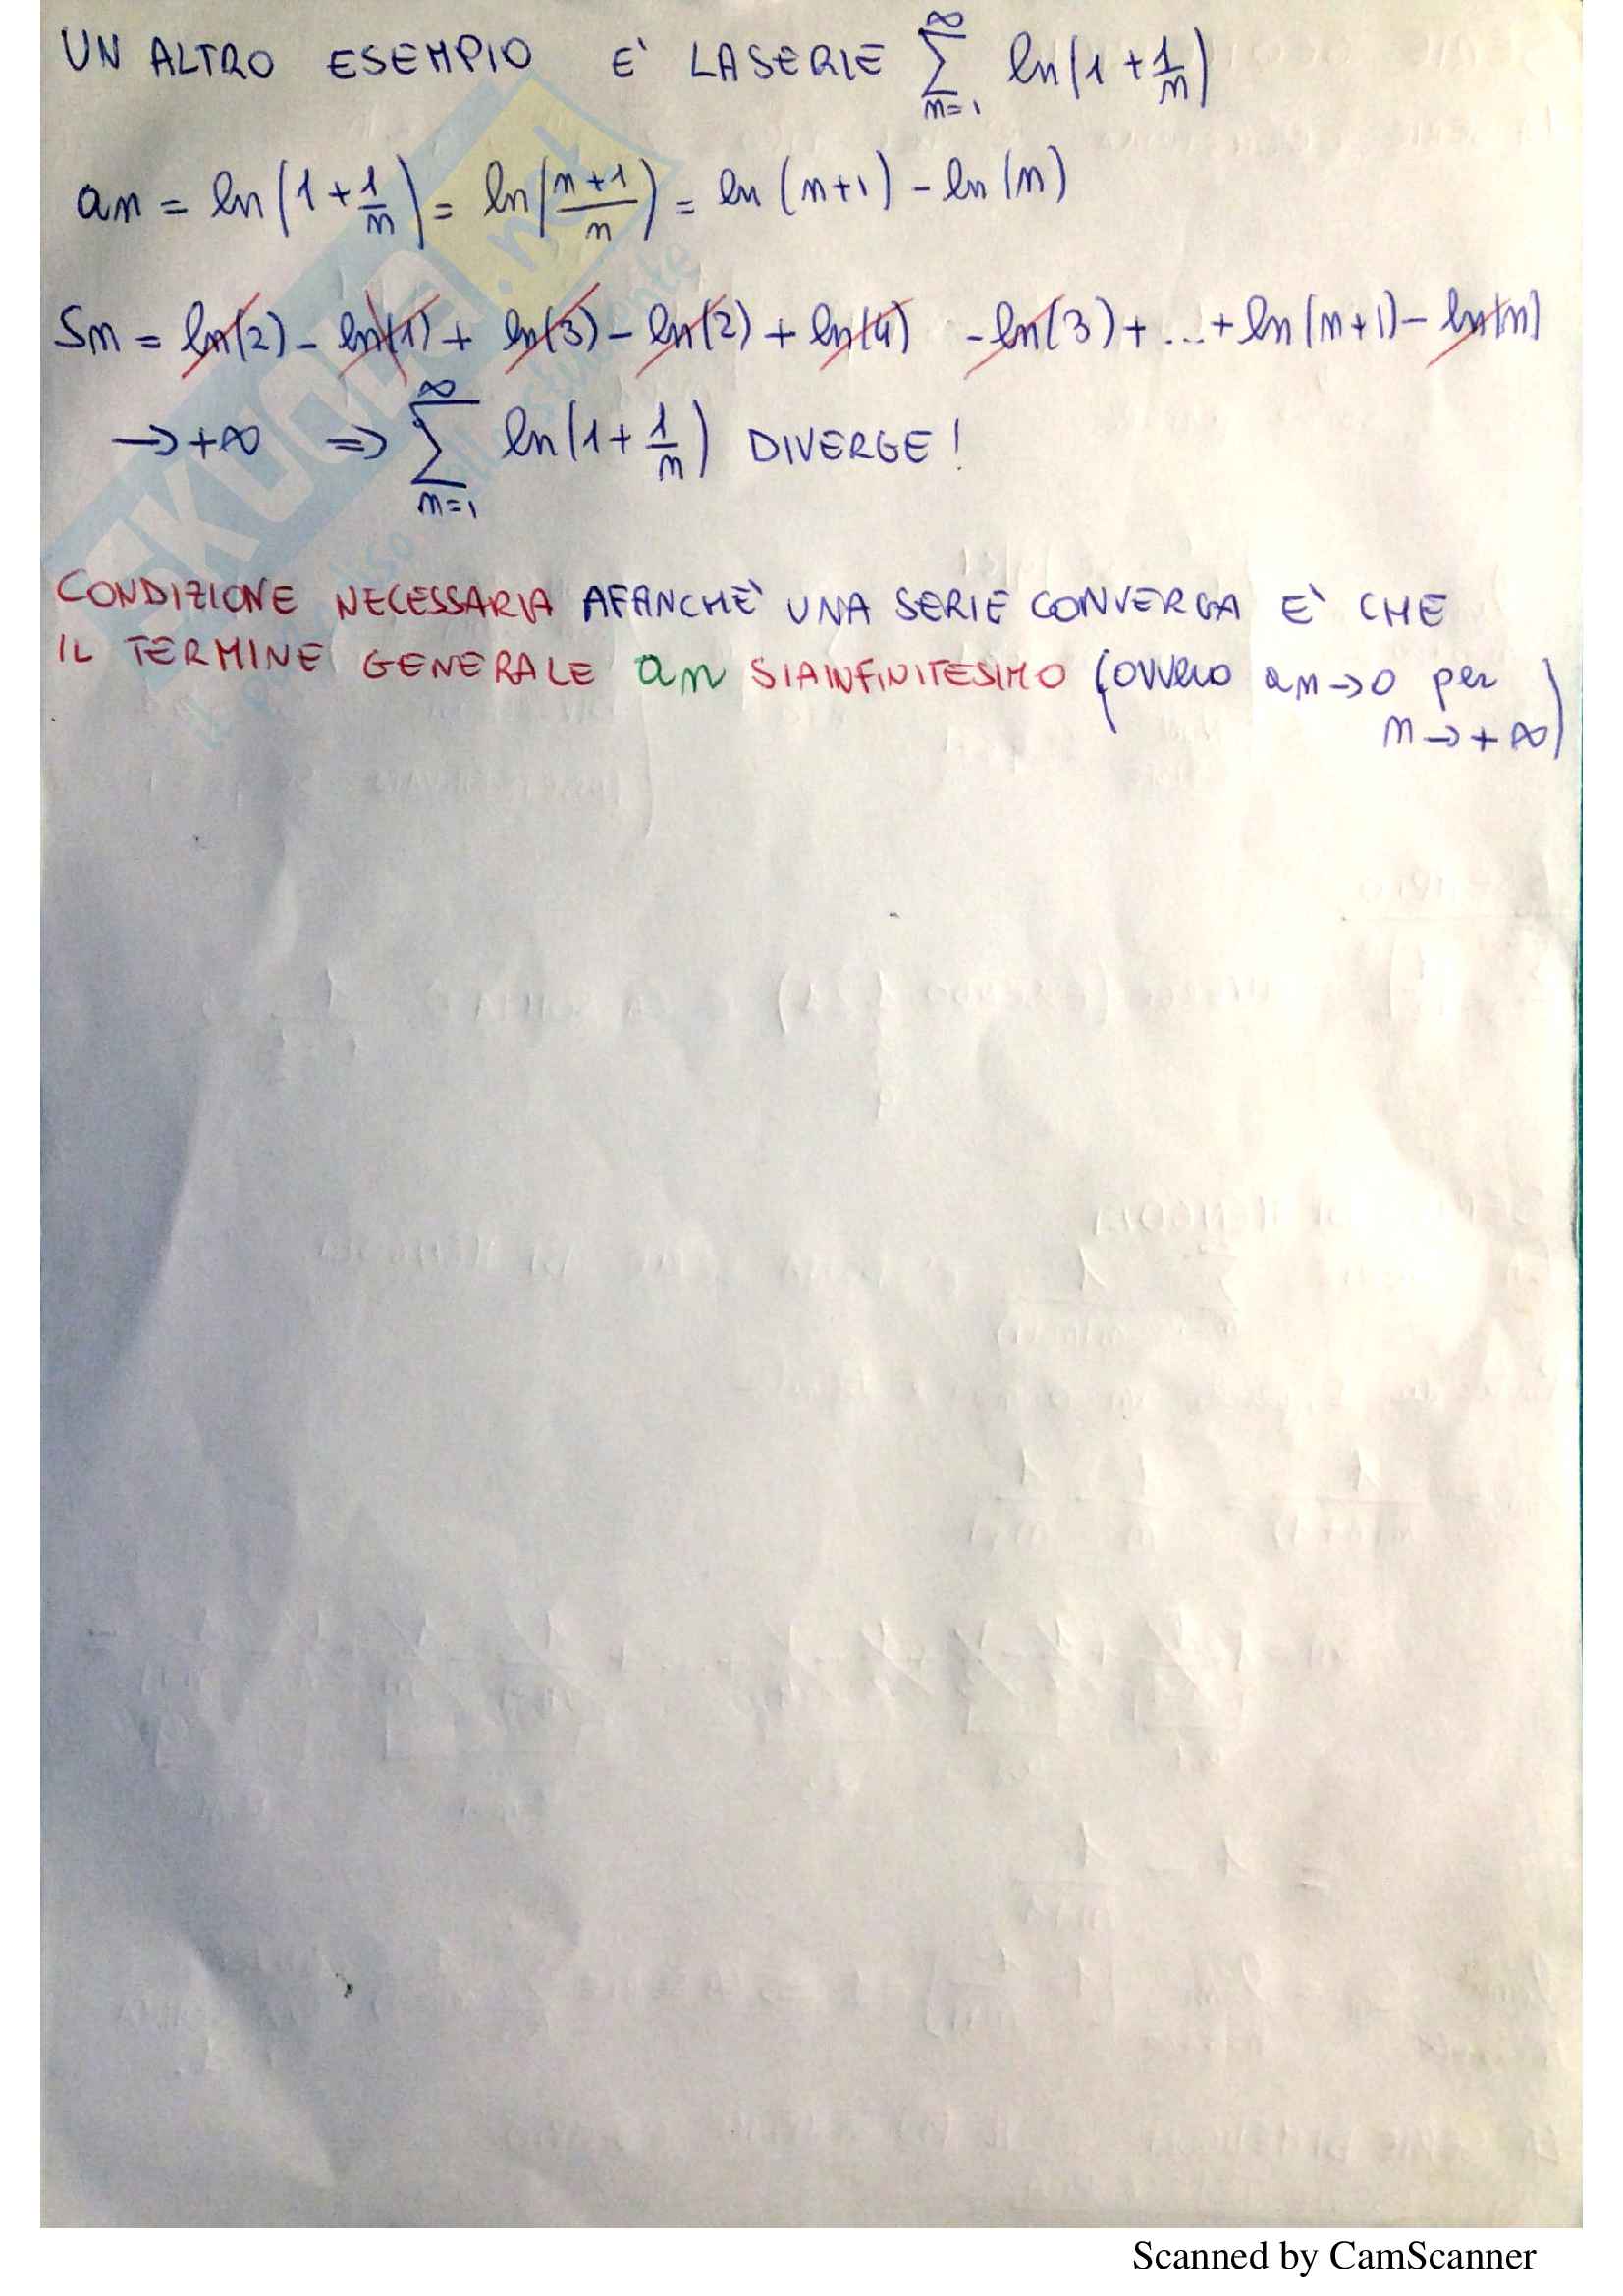 UN ALTRO ESEMPIO E' LA SERIE ∑_{n=1}^{∞} ln(1 + 1/n)
an = ln(1 + 1/n) = ln((n+1)/n) = ln (n+1) - ln (n)
Sn = ln(2) - ln(1) + ln(3) - ln(2) + ln(4) - ln(3) + ... + ln(n+1) - ln(n)
→ +∞ ⇒ ∑_{n=1}^{∞} ln(1 + 1/n) DIVERGE!
CONDIZIONE NECESSARIA AFFINCHÈ UNA SERIE CONVERGA E' CHE
IL TERMINE GENERALE an SIA INFINITESIMO (ovvero an → 0 per
n → +∞)
SKUOLA.net
Scanned by CamScanner